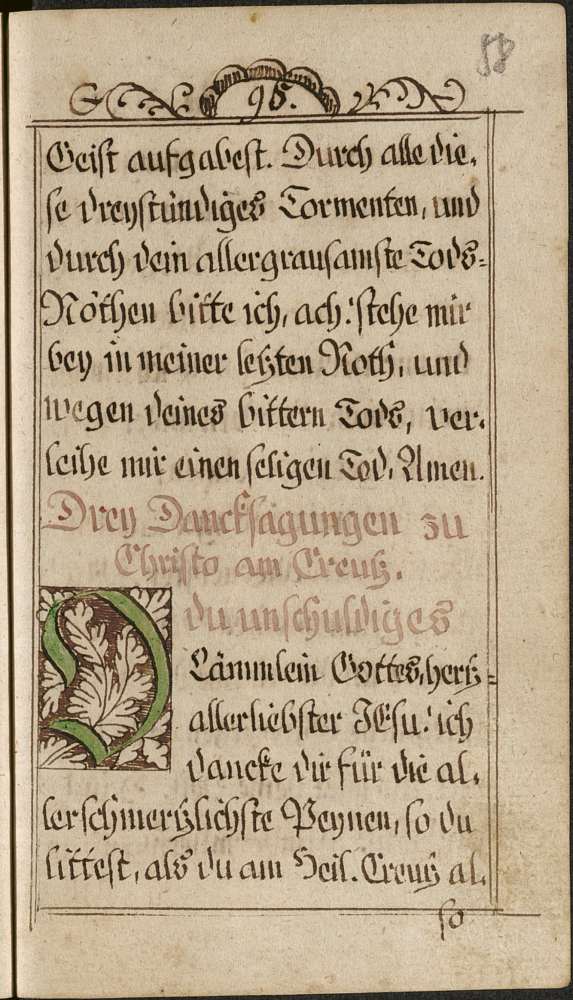 58
95.
Geist aufgabest. Durch alle die,
se dreystündiges Tormenten, und
durch dein allergrausamste Tods=
Nöthen bitte ich, ach! stehe mir
bey in meiner letzten Noth, und
wegen deines bittern Tods, ver,
leihe mir einen seligen Tod, Amen.
Drey Dancksagungen zu
Christo am Creutz.
O du unschuldiges
Lämmlein Gottes, hertz=
allerliebster JEsu! ich
dancke dir für die al,
lerschmertzlichste Peynen, so du
littest, als du am Heil. Creutz al,
so